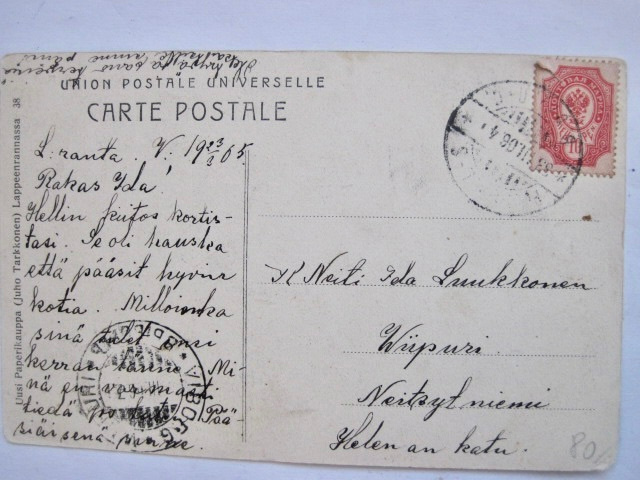 UNION POSTALE UNIVERSELLE
CARTE POSTALE
Uusi Paperikauppa (Juho Tarkkonen) Lappeenrannassa 38
L:ranta. V. 19 23/3 05.
Rakas Ida!
Hellin kiitos kortis-
tasi. Se oli hauska
että pääsit hyvin
kotia. Milloinka
sinä tulet ensi
kerran tänne. Mi-
nä en varmasti
tiedä
Pää-
siäisenä
K Neiti Ida Luukkonen
Wiipuri.
Neitsytniemi
Helenan katu.
VIBORG
80